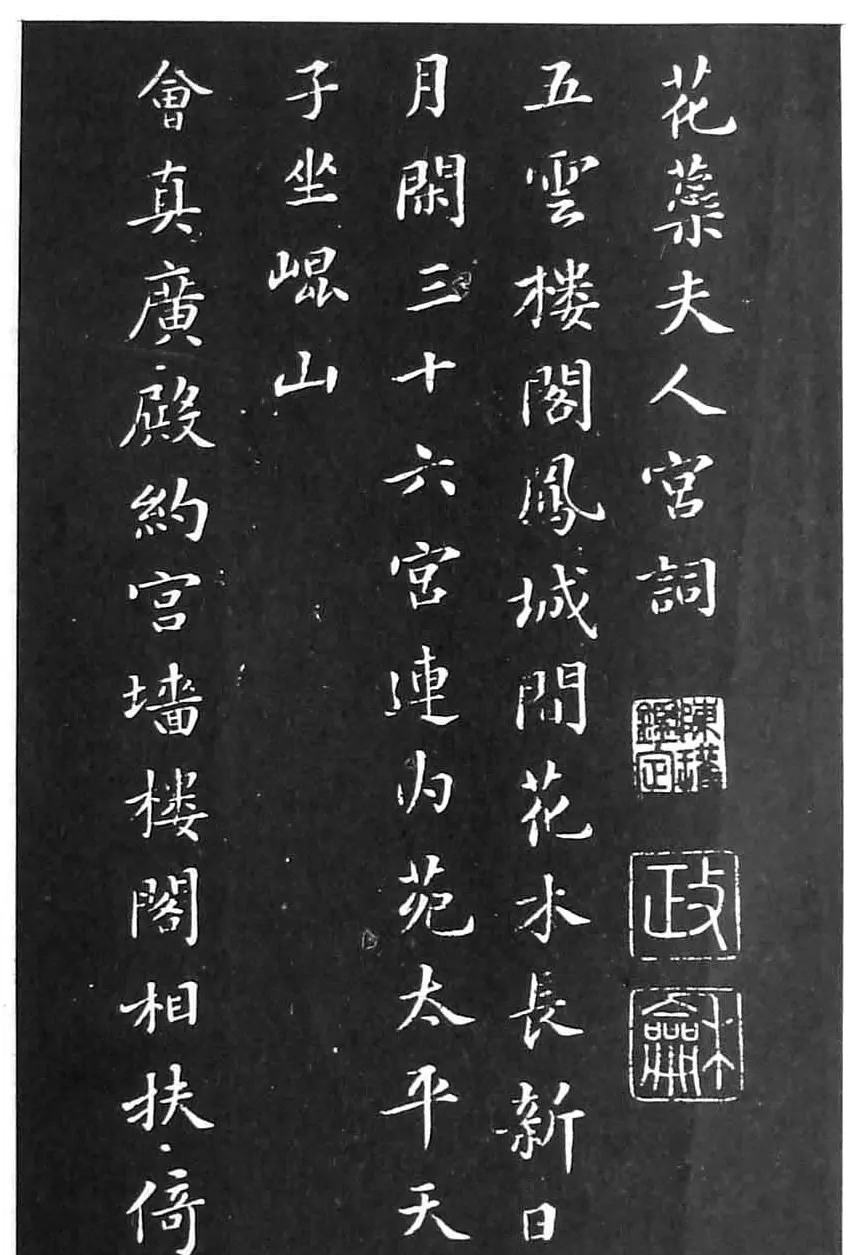 花蘂夫人宮詞
陳㻞鑑定
政
龢
五雲楼閣鳳城間花木長新日
月閑三十六宮連內苑太平天
子坐崐山
會真廣殿約宮墻楼閣相扶倚